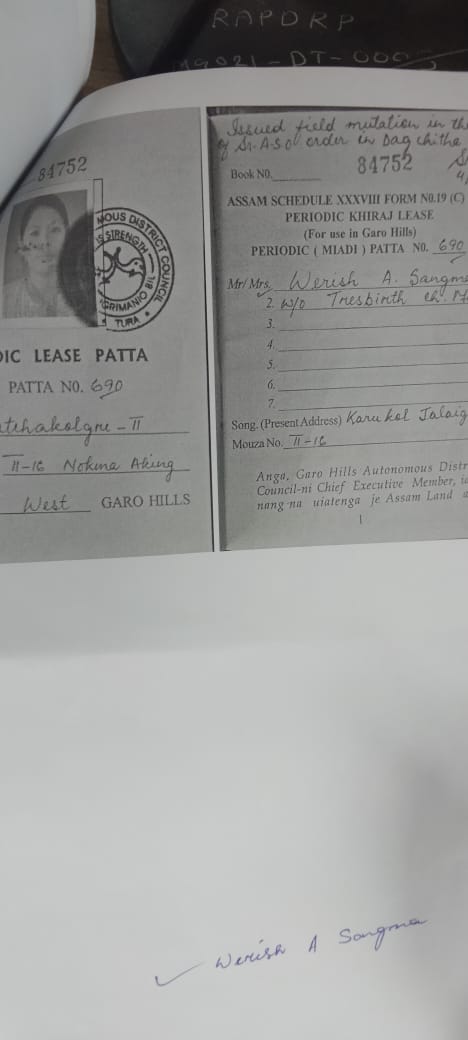 RAPDRP
M9021-DT-000
84752
IS STRENGTH
TURA
IC LEASE PATTA
PATTA NO. 690
II-16 Nokma Aking
West GARO HILLS
Issued field mutation in th
of Sr. A.S.O order in Dag chitha
Book NO. 84752
ASSAM SCHEDULE XXXVIII FORM N0.19 (C)
PERIODIC KHIRAJ LEASE
(For use in Garo Hills)
PERIODIC ( MIADI ) PATTA NO. 690
Mr/ Mrs. Werish A. Sangma
2. W/o Tresbirth ch. M
3.
4.
5.
6.
7.
Song. (Present Address) Karukol Jalaig
Mouza No. II-16
Anga, Garo Hills Autonomous Distr
Council-ni Chief Executive Member, ia
nang na uiatenga je Assam Land a
1
Werish A Sangma